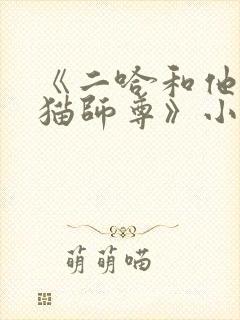 《二哈和他
猫師尊》小
萌萌喵